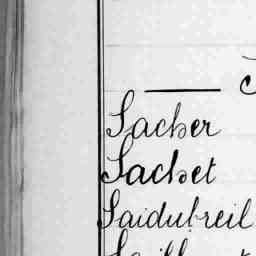 Sacher
Sachet
Saidubreil